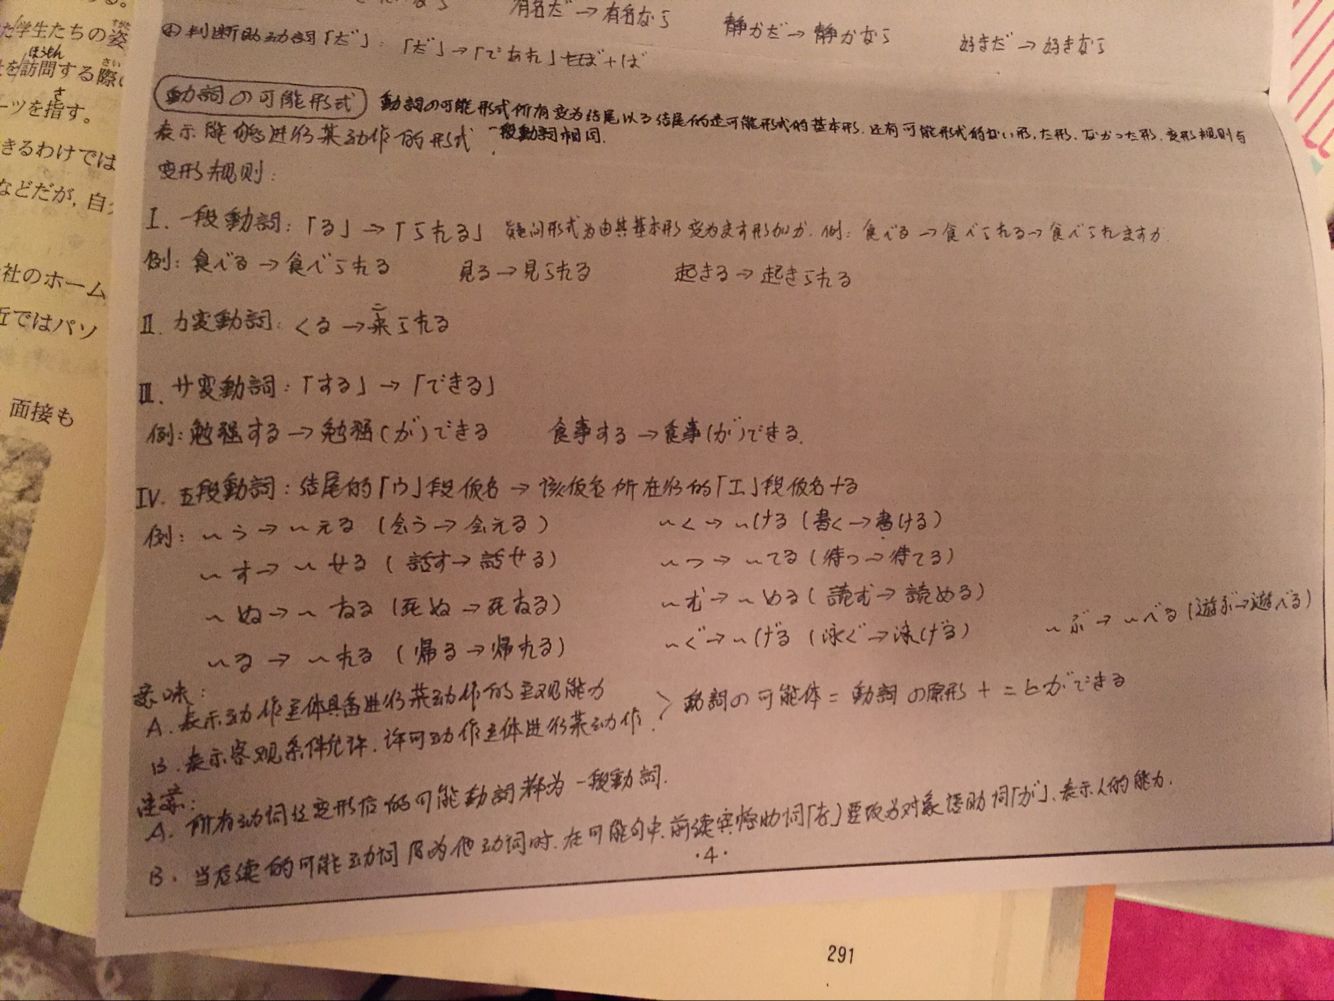 た学生たちの姿
すがた
ほうもん
を訪問する際
さい
ーツを指す。
さ
きるわけでは
などだが, 自
社のホーム
近ではパソ
面接も
有名だ→有名なら 静かだ→静かなら 好きだ→好きなら
④判断助动詞「だ」: 「だ」→「であれ」+ば
動詞の可能形式 動詞の可能形式所有变为结尾以る结尾的是可能形式的基本形, 还有可能形式的ない形, た形, なかった形, 变形规则与
表示能够进行某动作的形式 一段動詞相同.
变形规则:
I. 一段動詞:「る」→「られる」 疑问形式为由其基本形变为ます形加か. 例: 食べる→食べられる→食べられますか.
例: 食べる→食べられる 見る→見られる 起きる→起きられる
II. カ変動詞: くる→来られる
こ
III. サ変動詞:「する」→「できる」
例: 勉強する→勉強(が)できる 食事する→食事(が)できる.
IV. 五段動詞: 结尾的「ウ」段仮名→该仮名所在行的「エ」段仮名+る
例: ~う→~える (会う→会える) ~く→~ける (書く→書ける)
~す→~せる (話す→話せる) ~つ→~てる (待つ→待てる)
~ぬ→~ねる (死ぬ→死ねる) ~む→~める (読む→読める)
~る→~れる (帰る→帰れる) ~ぐ→~げる (泳ぐ→泳げる) ~ぶ→~べる (遊ぶ→遊べる)
意味:
A. 表示动作主体具备进行某动作的主观能力
B. 表示客观条件允许, 许可动作主体进行某动作. > 動詞の可能体=動詞の原形+ことができる
注意:
A. 所有动词经变形后的可能動詞都为一段動詞.
B. 当后续的可能动词原为他动词时, 在可能句中, 前续宾格助词「を」要改为对象格助词「が」, 表示人的能力.
·4·
291